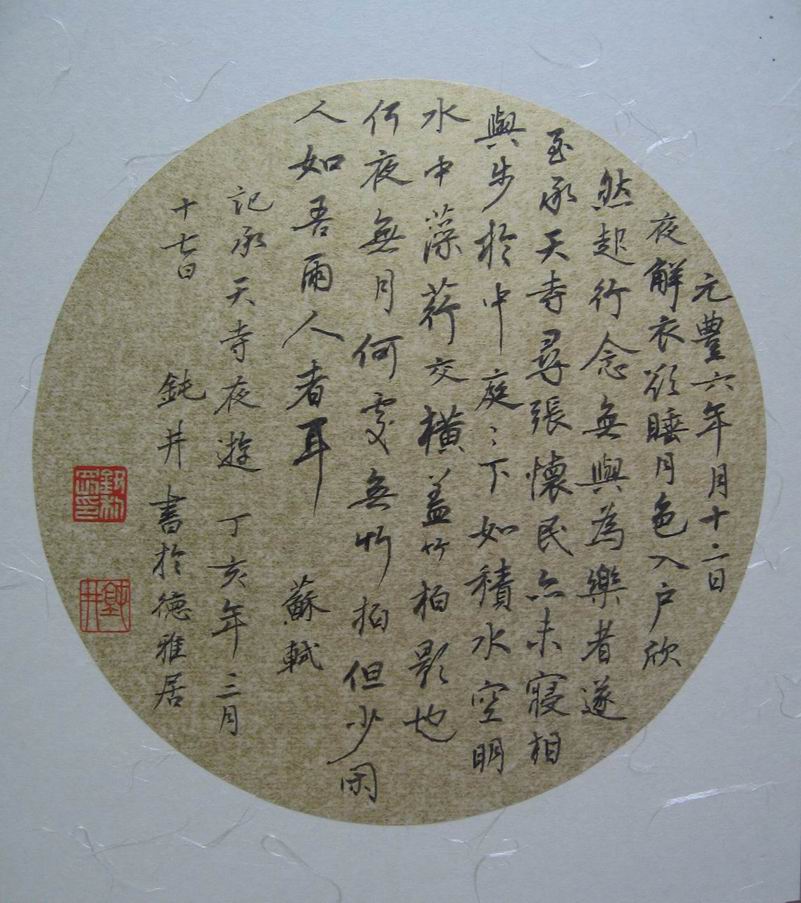 元豐六年月十二日
夜解衣欲睡月色入户欣
然起行念無與為樂者遂
至承天寺尋張懷民亦未寢相
與步於中庭〻下如積水空明
水中藻荇交橫蓋竹柏影也
何夜無月何處無竹柏但少閑
人如吾兩人者耳 蘇軾
記承天寺夜遊 丁亥年三月
十七日 鈍井書於德雅居